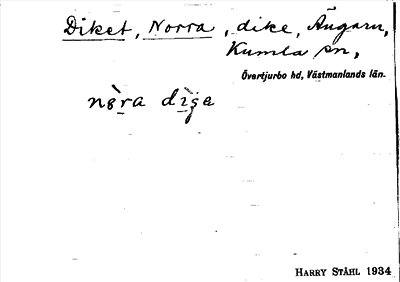 Diket, Norra, dike, Ängarn,
Kumla sn,
Övertjurbo hd, Västmanlands län.
nòra dìgə
HARRY STÅHL 1934